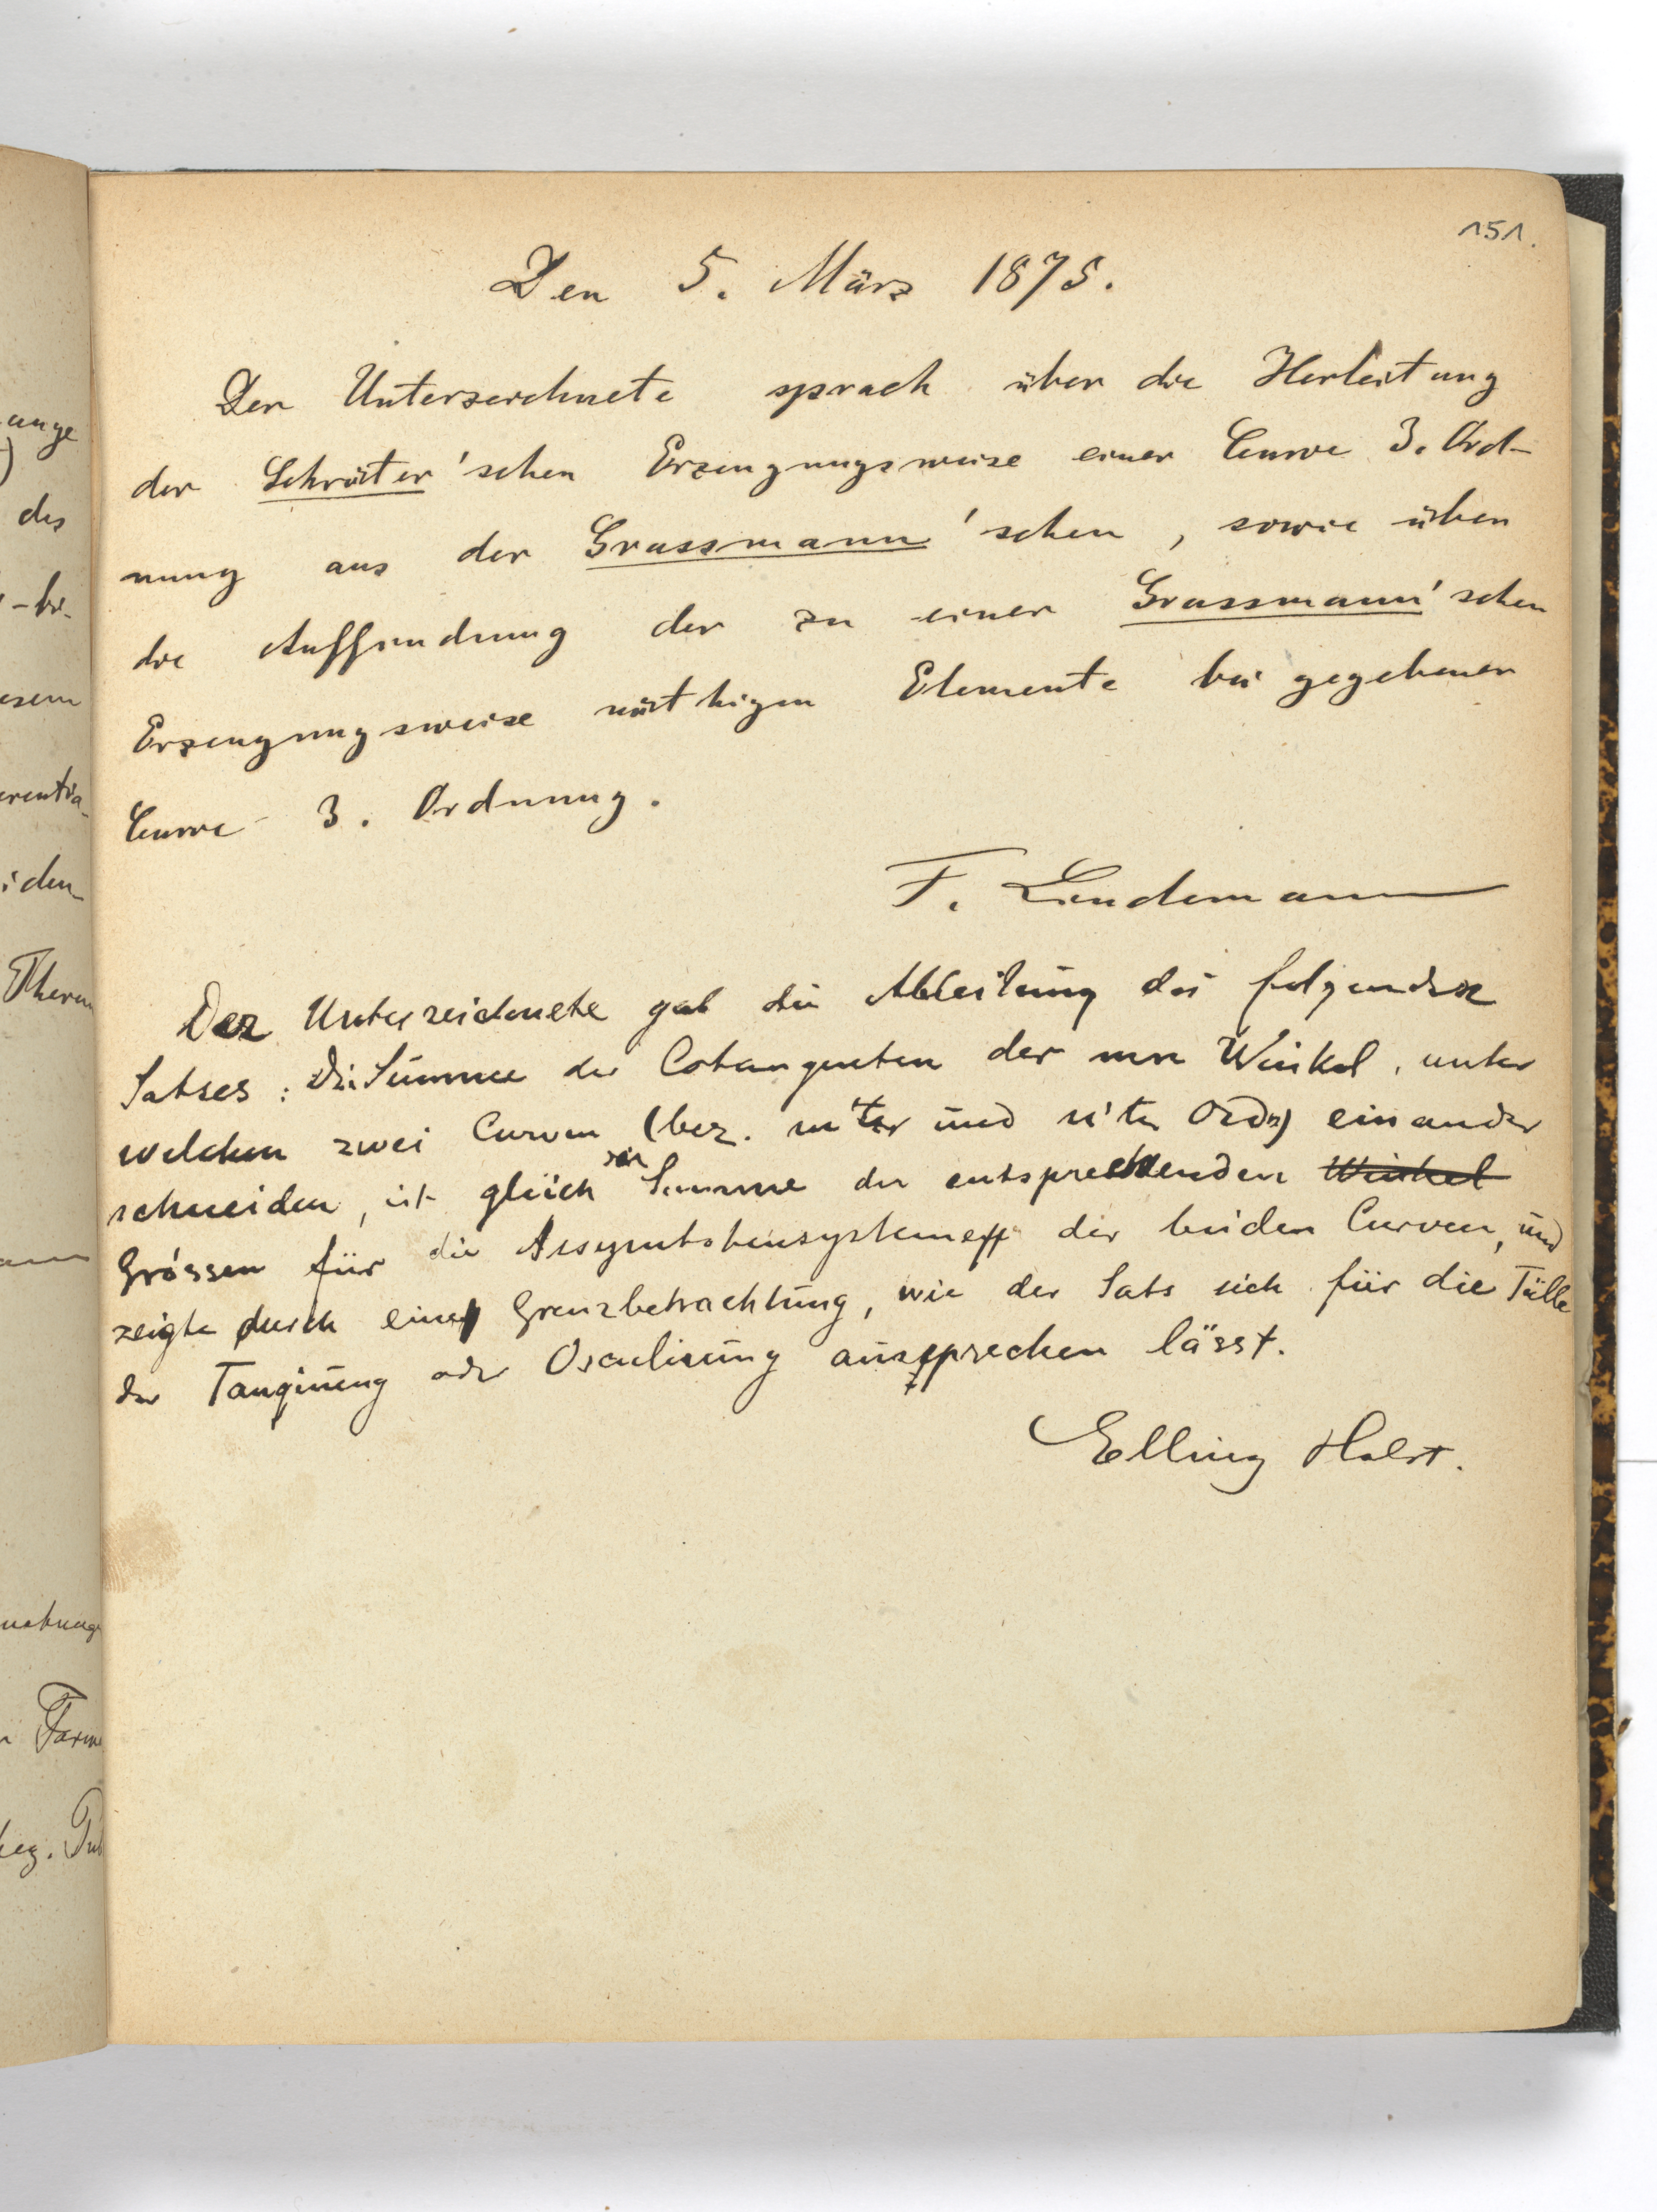 151.
Den 5. März 1875.
Der Unterzeichnete sprach über die Herleitung
der Schröter'schen Erzeugungsweise einer Curve 3. Ord-
nung aus der Grassmann'schen, sowie über
die Auffindung der zu einer Grassmann'schen
Erzeugungsweise nöthigen Elemente bei gegebener
Curve 3. Ordnung.
F. Lindemann
Der Unterzeichnete gab die Ableitung des folgenden
Satses: Die Summe der Cotangenten der mn Winkel, unter
welchen zwei Curven (bez. m'ter und n'ter Ordn) einander
schneiden, ist gleich der Summe der entsprechenden Winkel
Grössen für die Assymtotensysteme der beiden Curven, und
zeigte durch eine Grenzbetrachtung, wie der Sats sich für die Fälle
der Tangirung oder Osculirung aussprechen lässt.
Elling Holst.
ange
)
des
esem
erentia
iden
Therm
Form